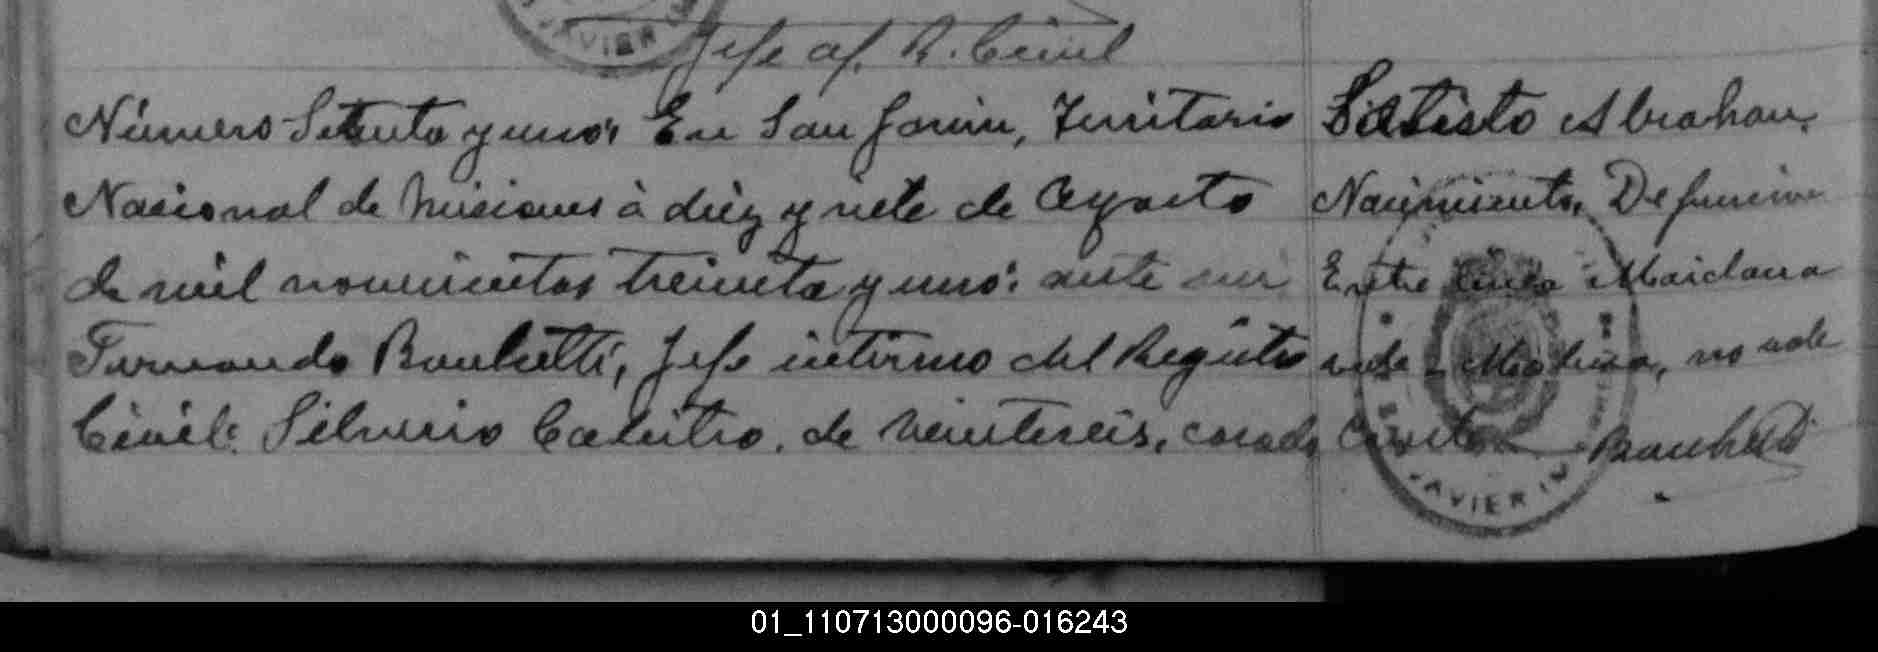 JAVIER
Jefe af. R. Civil
Número Setenta y uno: En San Javier, Territorio
Nacional de Misiones à diez y siete de Agosto
de mil novecientos treinta y uno: ante mi
Fernando Jefe interino del Registro
Civil: Silverio de veinteseis, casado
Sixto Abrahan.
Nacimiento. Defuncion
Entre linea Maidana
vale - Medina, no vale
JAVIER
01_110713000096-016243